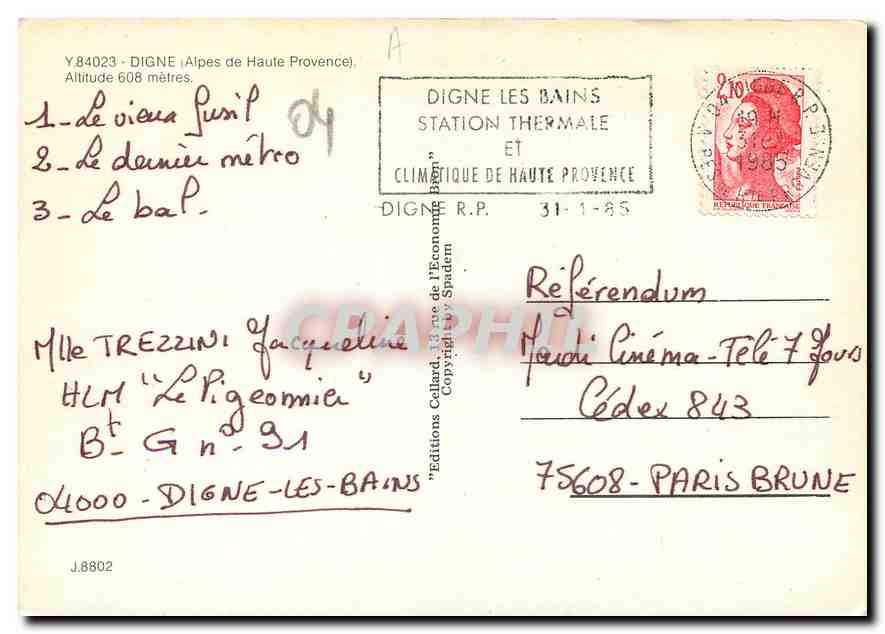 Y.84023 - DIGNE (Alpes de Haute Provence).
Altitude 608 mètres.
1 - Le vieux fusil
2 - Le dernier métro
3 - Le bal.
04
A
DIGNE LES BAINS
STATION THERMALE
ET
CLIMATIQUE DE HAUTE PROVENCE
DIGNE R.P. 31-1-85
2,10
1985
REPUBLIQUE FRANÇAISE
"Editions Cellard, 13 rue de l'Economie Bron"
Copyright by Spadem
Référendum
Mardi Cinéma - Télé 7 Jours
Cédex 843
75608 - PARIS BRUNE
Mlle TREZZINI Jacqueline
HLM "Le Pigeonnier"
Bt - G n° - 91
04000 - DIGNE-LES-BAINS
J.8802